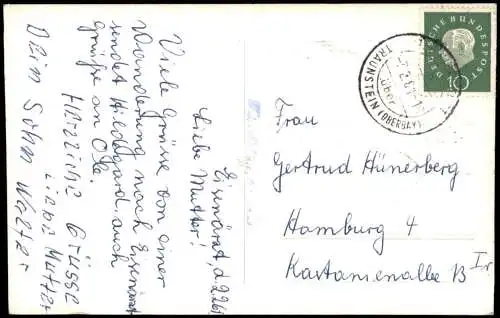 Eisenärzt, d. 2.2.61
Liebe Mutter!
Viele Grüsse von einer
Wanderung nach Eisenärzt
sendet Hildegard. auch
grüsse an Ole.
Herzliche Grüsse
Liebe Mutter
Dein Sohn Walter
DEUTSCHE BUNDESPOST
10
TRAUNSTEIN (OBERBAY)
über
Frau
Gertrud Hünerberg
Hamburg 4
Kastanienallee 13 Ir.